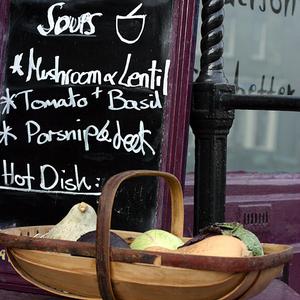 Soups
* Mushroom & Lentil
* Tomato + Basil
* Parsnip & Leek
Hot Dish:
better